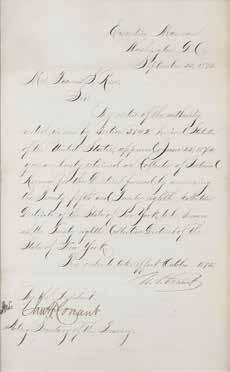 Executive Mansion
Washington D.C.
September 25, 187
Mr.
Sir
By virtue of the authority
vested in me by Section 3142, Revised Statutes
of the United States, approved June 22, 1874
you are hereby retained as Collector of Internal
Revenue for the District formed by annexing
the Twenty fifth and Twenty eighth Collection
Districts of the State of New York, to be known
as the Twenty eighth Collection District of the
State of New York.
This order to take effect October 1, 187
U. S. Grant
By the President
Conant
Acting Secretary of the Treasury.